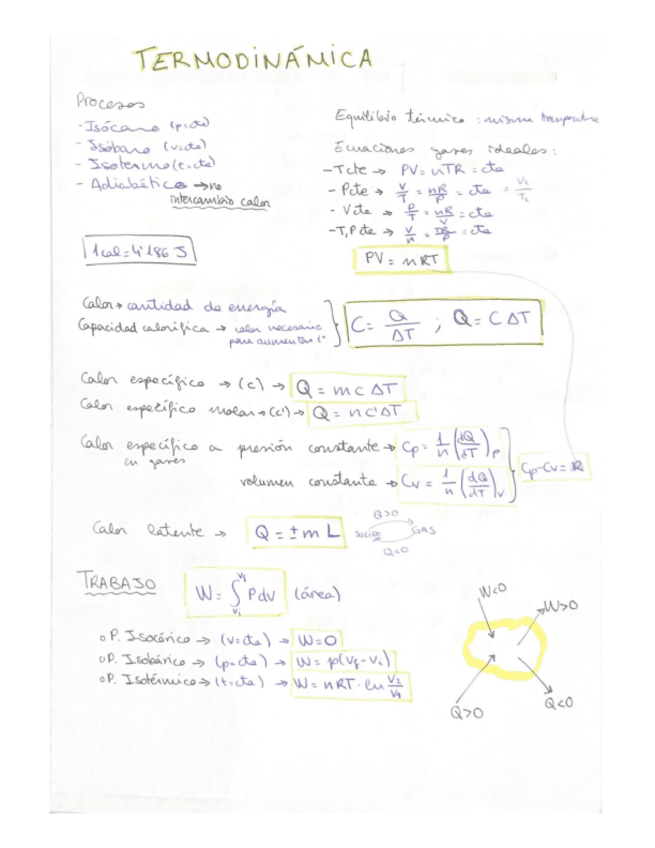 TERMODINÁMICA
Procesos
- Isócaro (p=cte)
- Isóbaro (v=cte)
- Isotermo (t=cte)
- Adiabático → no
intercambio calor
Equilibrio térmico : misma temperatura
Ecuaciones gases ideales:
- T cte → PV = nTR = cte
- P cte → V/T = nR/P = cte = V₂/T₂
- V cte → P/T = nR/V = cte
- T, P cte → V/n = = cte
PV = nRT
1 cal = 4'186 J
Calor → cantidad de energía
Capacidad calorífica → calor necesario
para aumentar tª
C = Q/ΔT ; Q = C ΔT
Calor específico → (c) → Q = m c ΔT
Calor específico molar → (c') → Q = n c' ΔT
Calor específico a presión constante → Cp = 1/n (dQ/dT)p
en gases
volumen constante → Cv = 1/n (dQ/dT)v
Cp - Cv = R
Calor latente → Q = ± m L
Q>0
GAS
Q<0
TRABAJO
W = ∫ P dv (área)
o P. Isocórico → (v=cte) → W=0
o P. Isobárico → (p=cte) → W = p(Vf - Vi)
o P. Isotérmico → (t=cte) → W = nRT · ln V₂/V₁
W<0
W>0
Q>0
Q<0